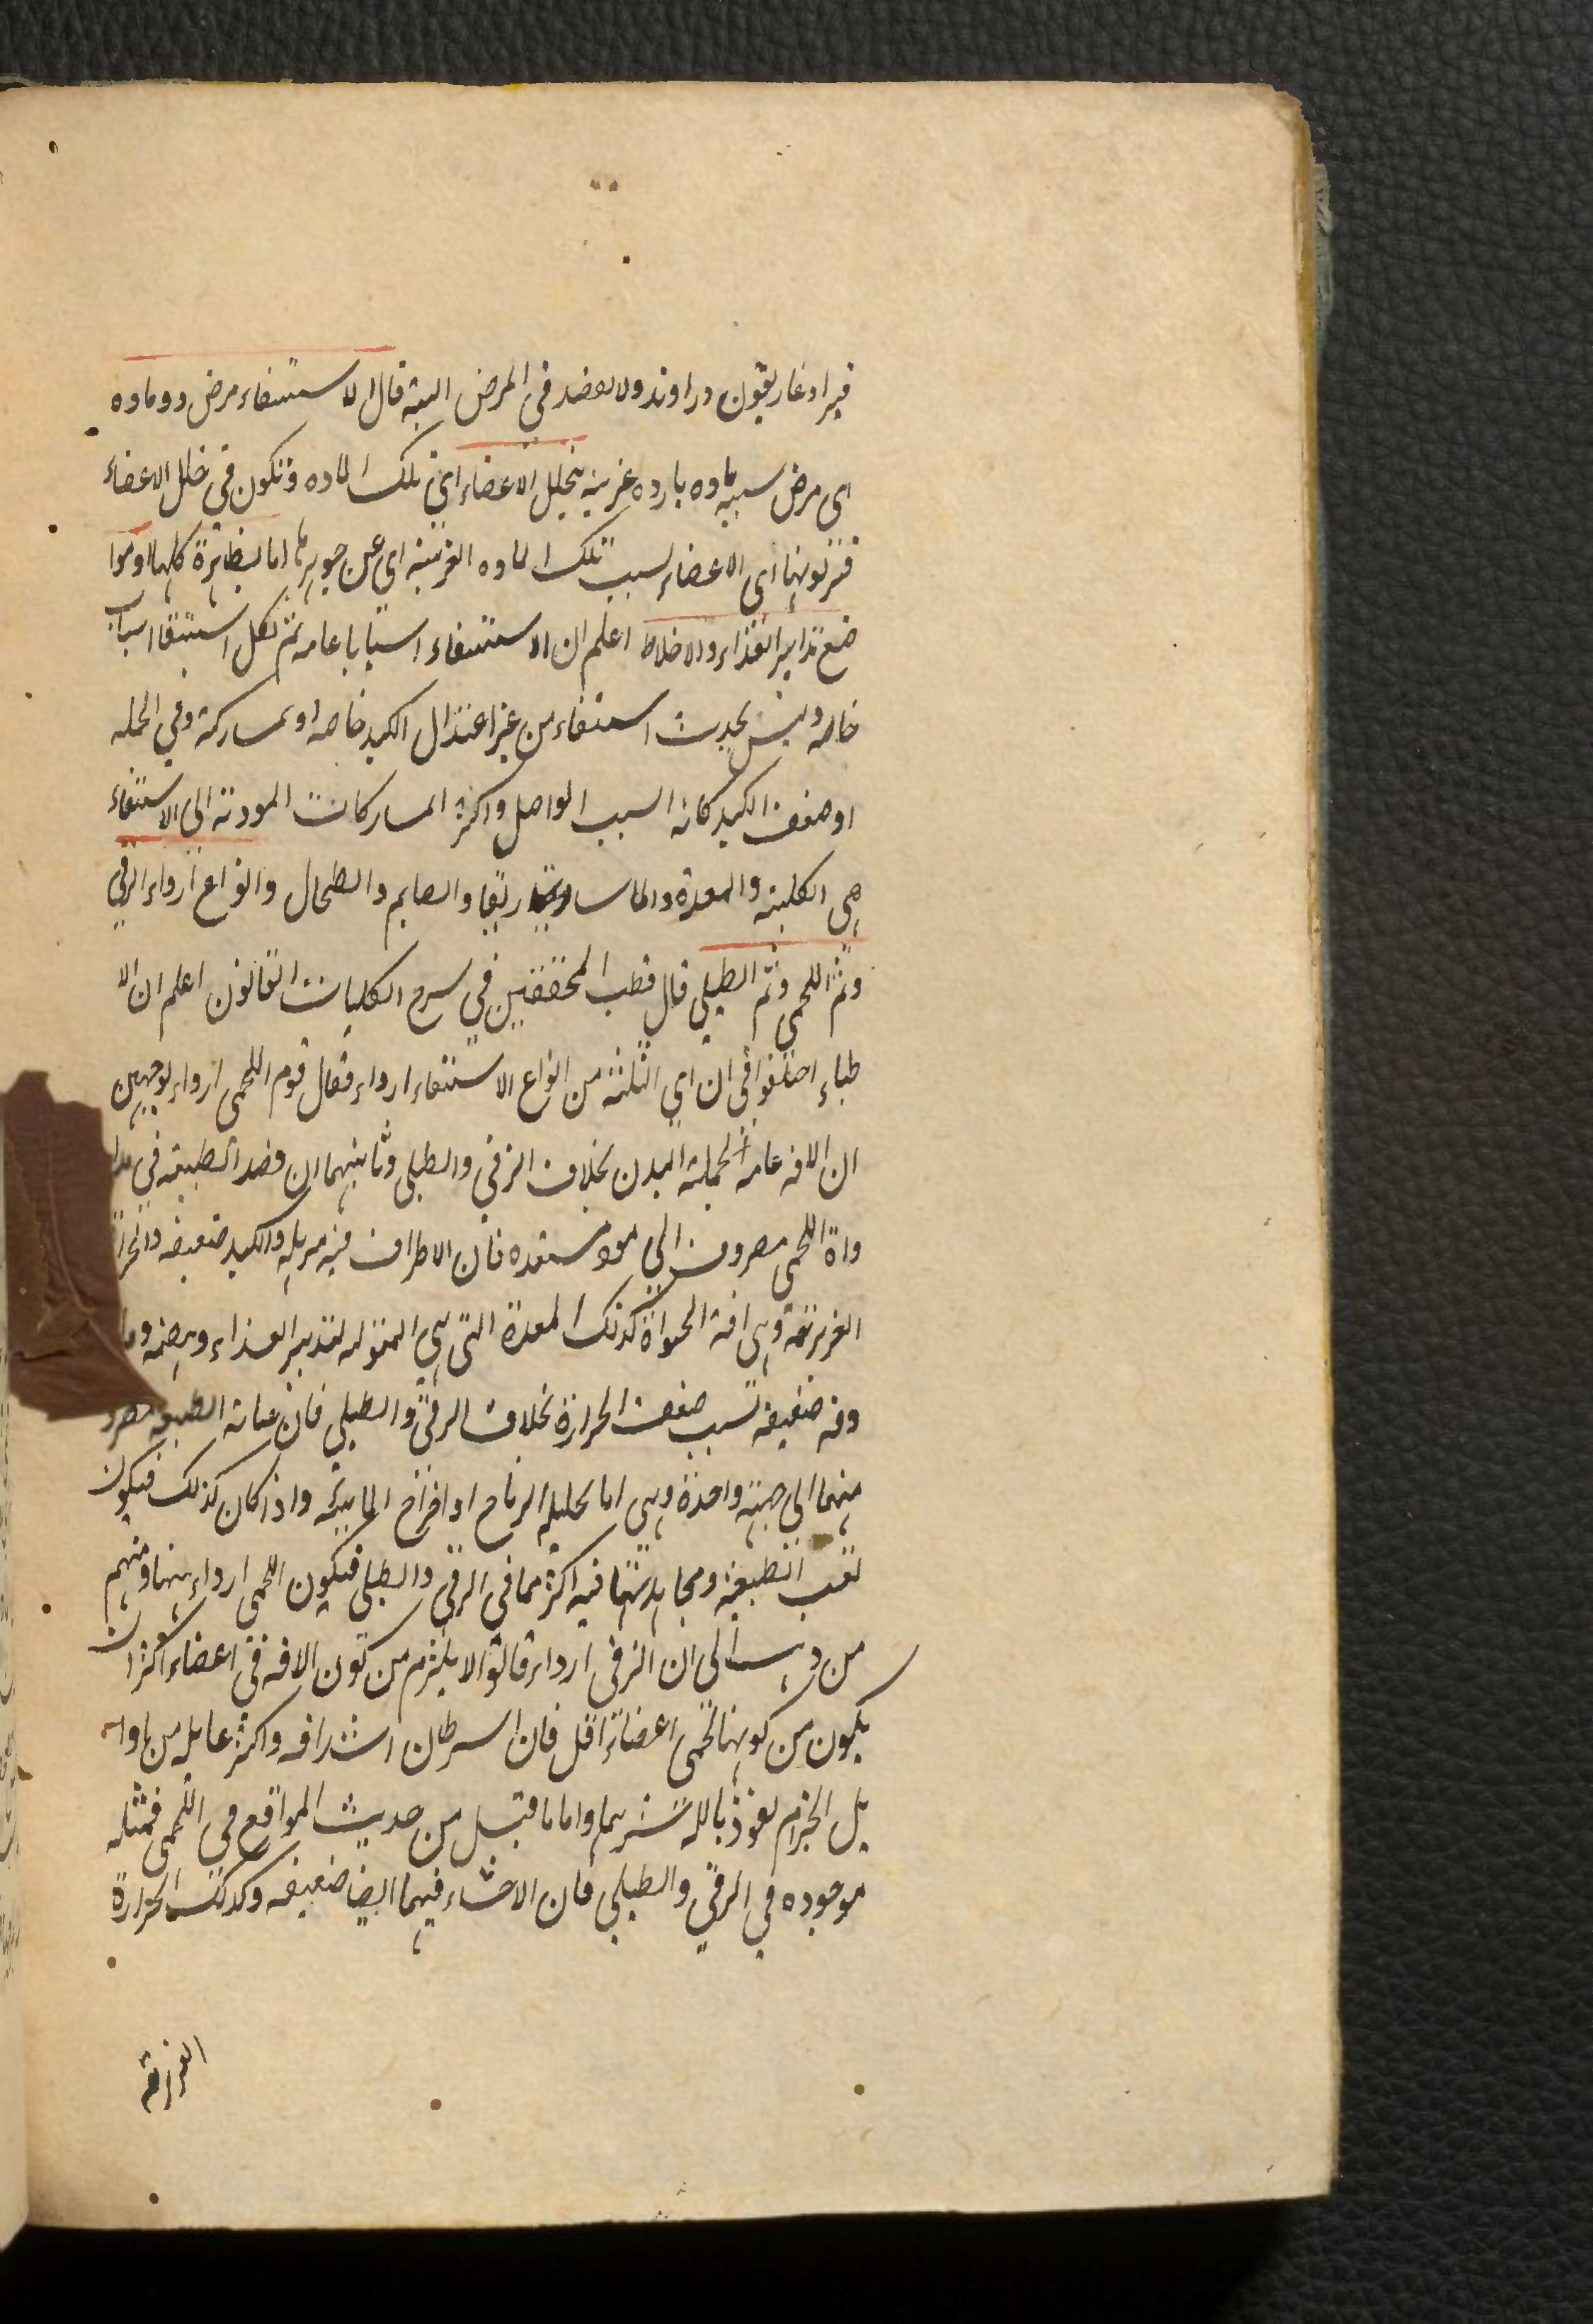 فيرا وغاريقون وراوند ولا يفصد في المرض البتة قال الاستسقاء مرض ذو ماده
اى مرض سببه ماده بارده غريبة يتخلل الاعضاء اى تلك الماده وتكون في خلل الاعضاء
فتربو بها اى الاعضاء بسبب تلك الماده الغريبة اى عن جوهرها اما الظاهرة كلها او موا
ضع تدابير الغذاء والاخلاط اعلم ان الاستسقاء اسبابا عامه ثم لكل استسقا اسباب
خاصه وليس يحدث استسقاء من غير اعتلال الكبد خاصه او بمشاركة وفي الجمله
او ضعف الكبد كانه السبب الواصل واكثر المشاركات المودية الى الاستسقاء
هي الكلية والمعدة والماساريقا والصايم والطحال وانواع ارداء الزقي
وثم اللحمي وثم الطبلي قال قطب المحققين في شرح الكليات القانون اعلم ان الا
طباء اختلفوا في ان اي الثلثة من انواع الاستسقاء ارداء فقال قوم اللحمي ارداء بوجهين
ان الافه عامة لجملة البدن بخلاف الزقي والطبلي وثانيهما ان قصد الطبيعه في مدا
واة اللحمي مصروف الي امور متعدده فان الاطراف فيه مترهله والكبد ضعيفه والحرارة
الغريزية وهي افة الحيواة كذلك المعدة التي هي المتوليه لتدبير الغذاء وهضمه
وفه ضعيفه بسبب ضعف الحرارة بخلاف الزقي والطبلي فان عناية الطبيعه مصرو
منهما الى جهة واحدة وهي اما تحليل الرياح او اخراج المايية واذا كان كذلك فيكون
تعب الطبيعة ومجاهدتها فيه اكثر مما في الزقي والطبلي فيكون اللحمي ارداء منهما ومنهم
من ذهب الى ان الزقي ارداء قالوا لا يلزم من كون الافه في اعضاء اكثر ان
يكون من كونها في اعضاء اقل فان السرطان اشد افه واكثر غايله من اوا
يل الجذام نعوذ بالله شرهما واما ما قيل من حديث المواقع في اللحمي فمثله
موجوده في الزقي والطبلي فان الاحشاء فيهما ايضا ضعيفه وكذلك الحرارة
الغريزية